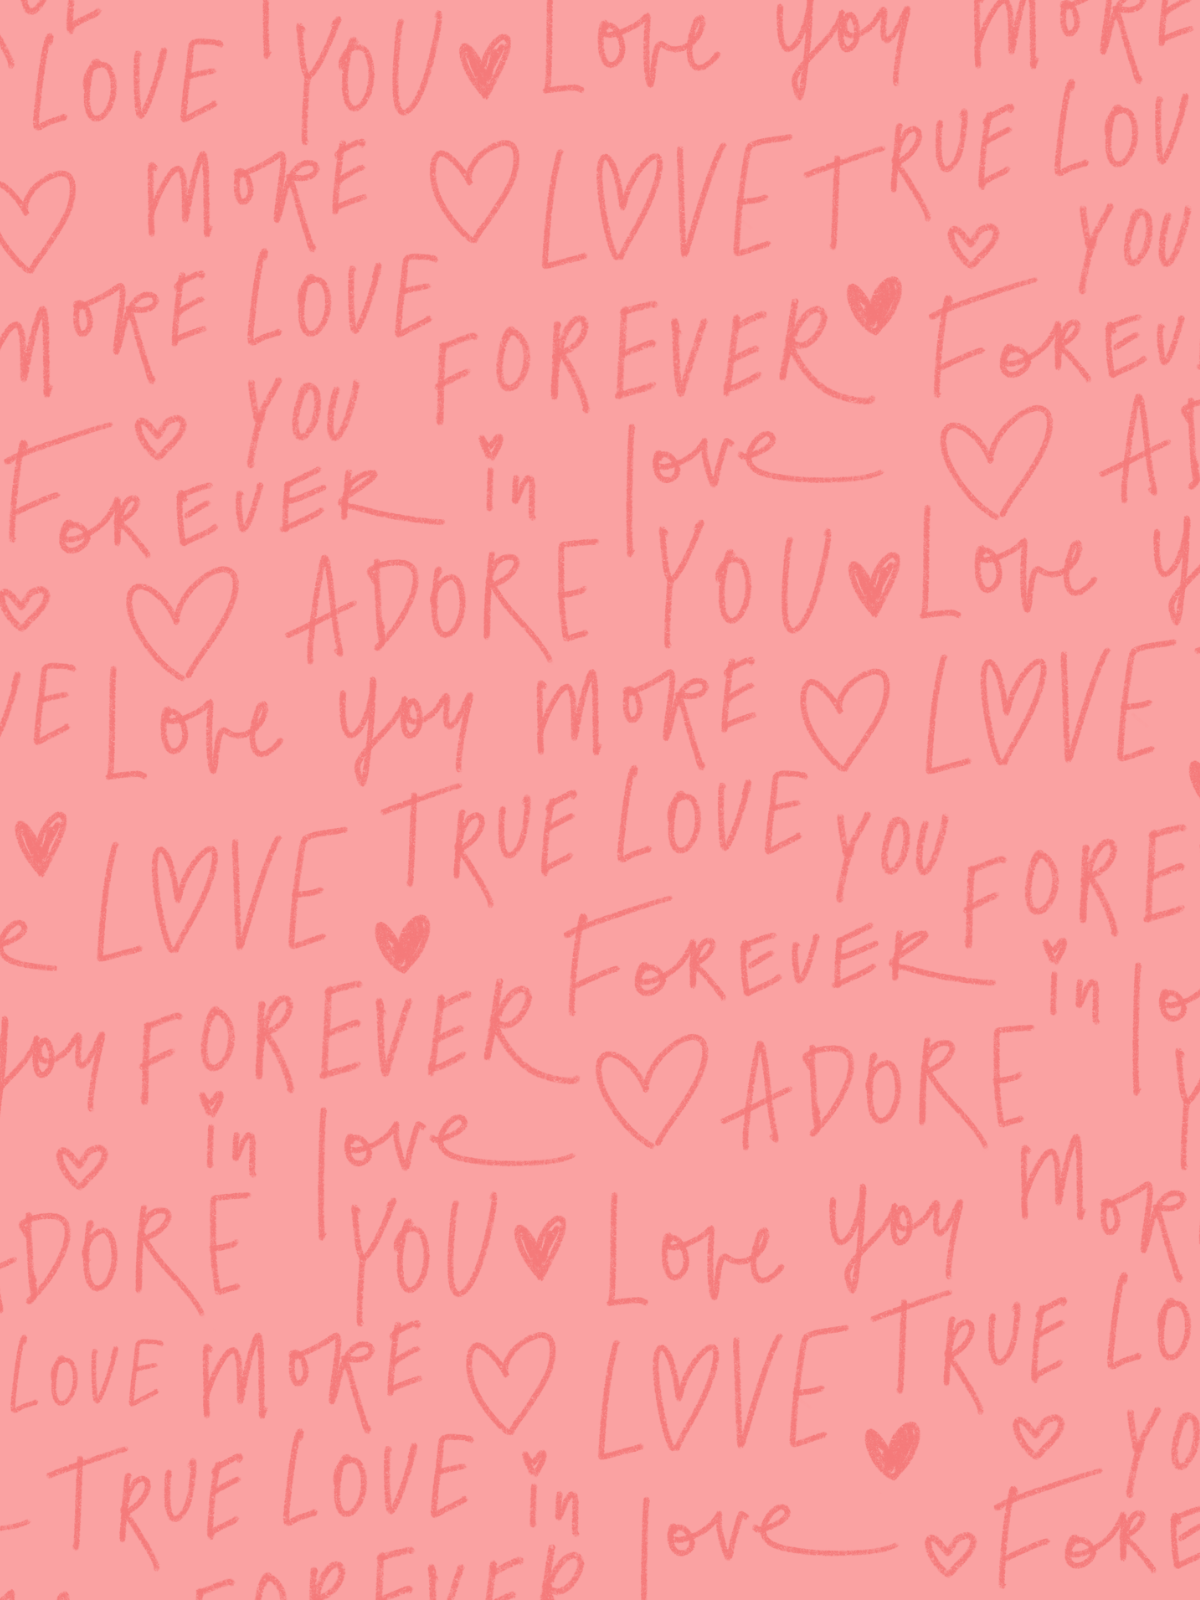 LOVE YOU Love you MORE
MORE LOVE TRUE LOV
YOU
MORE LOVE FOREVER FOREV
YOU
FOREVER in love AD
ADORE YOU Love y
VE Love you MORE LOVE
TRUE LOVE YOU
LOVE FORE
e FOREVER in lo
you FOREVER ADORE
in love
MOR
DORE YOU Love you
LOVE MORE LOVE TRUE LO
YO
TRUE LOVE in love FORE
FOREVER